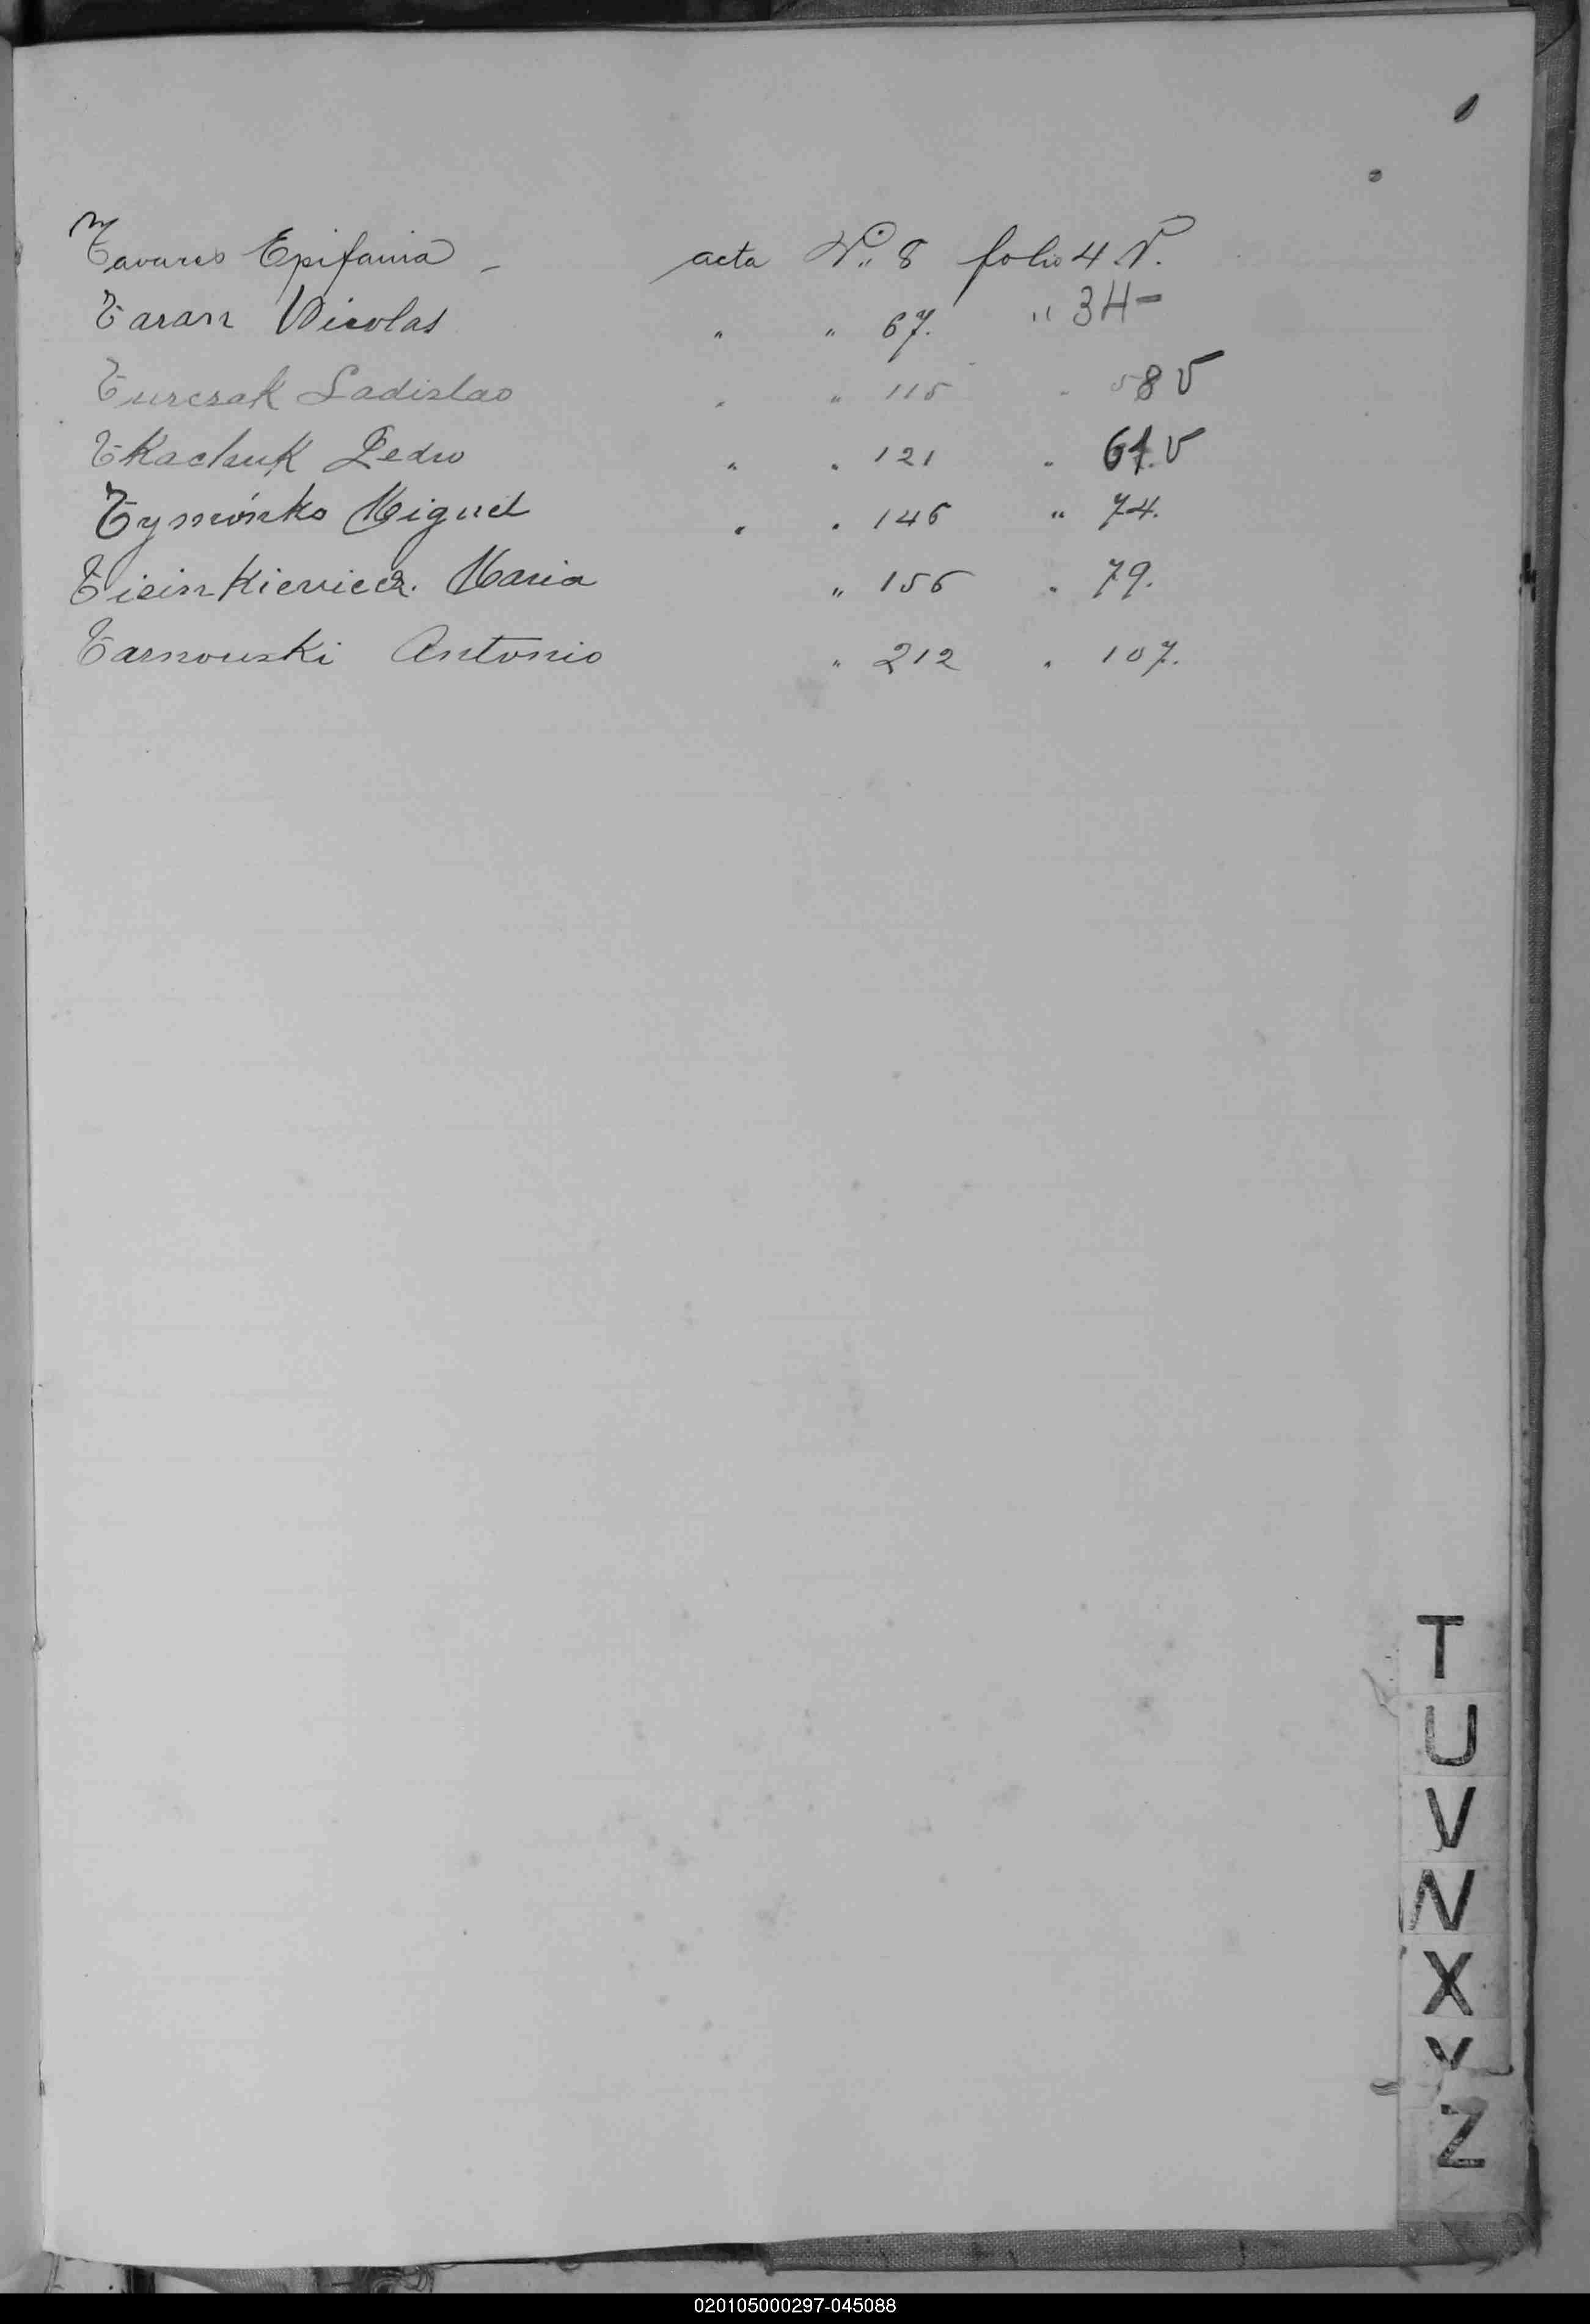 Tavares Epifania - acta Nº 8 folio 4 V.
Taran Nicolas " " 67. " 34-
Turczak Ladislao " " 115 " 58 V
Tkachuk Pedro " " 121 " 61. V
Tymóńko Miguel " " 146 " 74.
Maria " 156 " 79.
Tarnouski Antonio " 212 " 107.
T
U
V
W
X
Y
Z
020105000297-045088